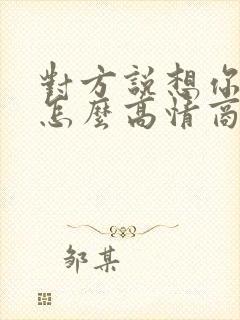 對方說想你
怎麼高情商
鄒某